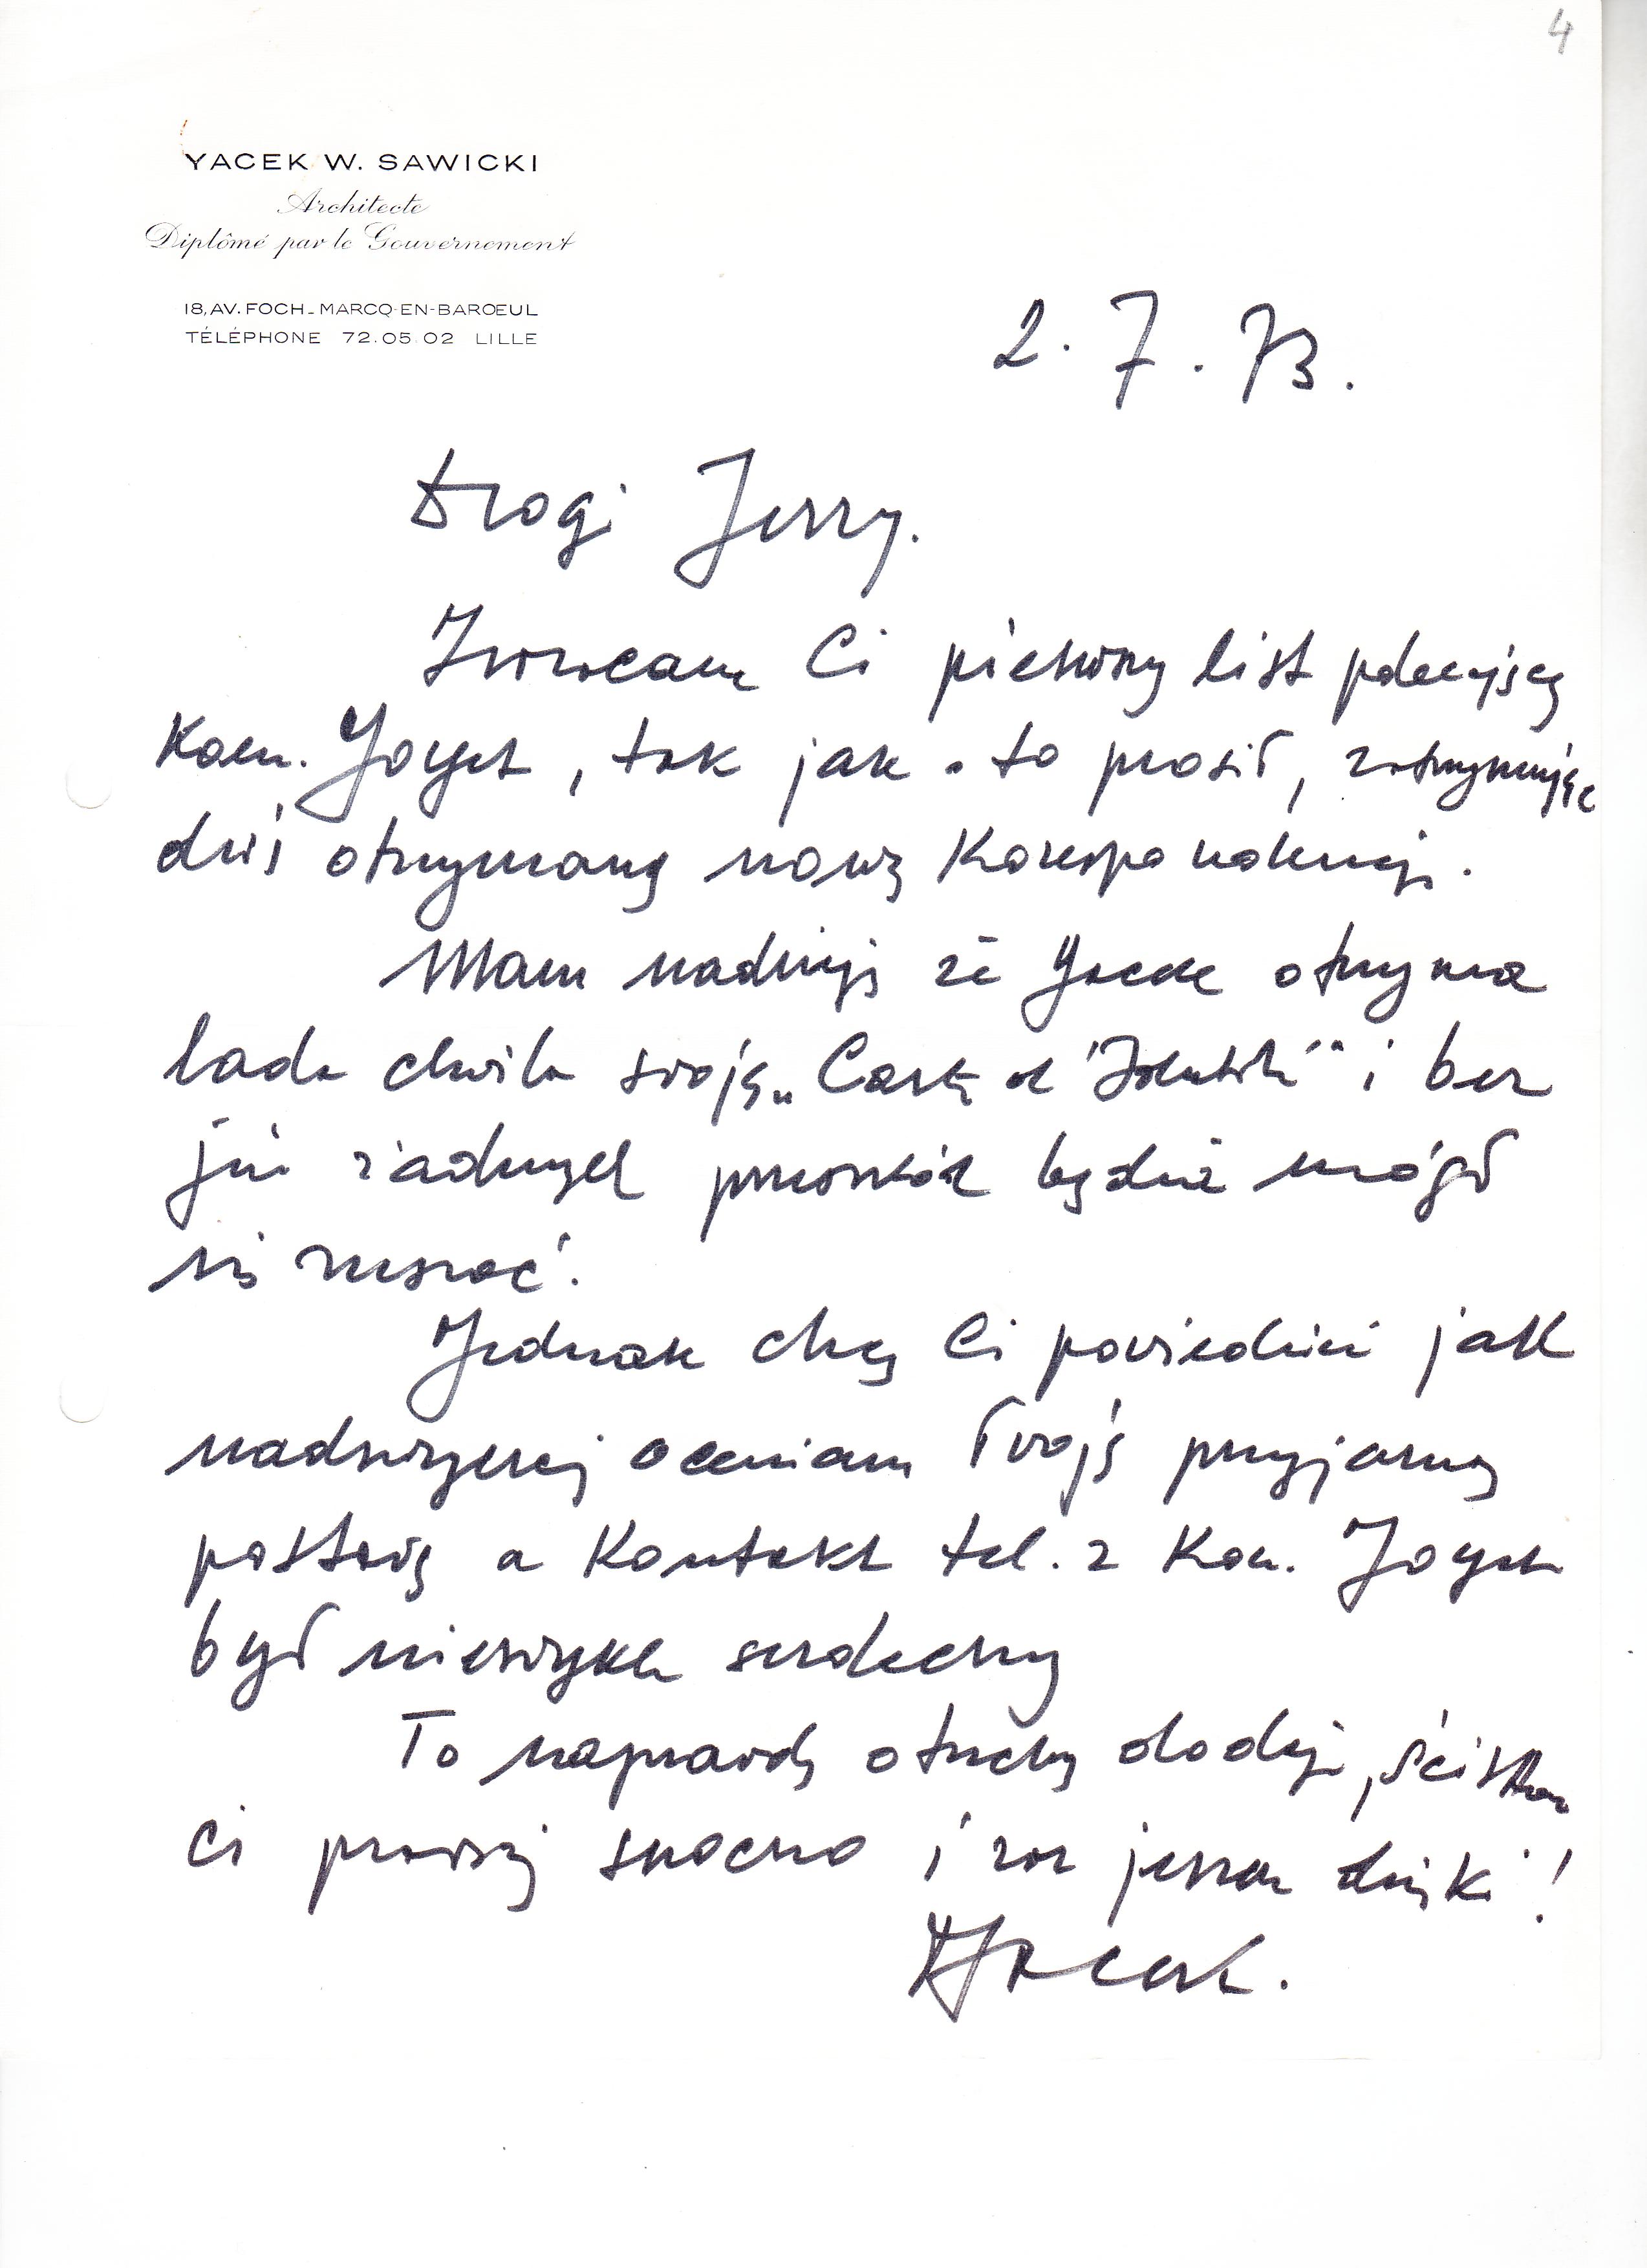 4
YACEK W. SAWICKI
Architecte
Diplômé par le Gouvernement
18, AV. FOCH - MARCQ-EN-BAROEUL
TÉLÉPHONE 72.05.02 LILLE
2.7.73.
Drogi Jerzy.
Zwracam Ci pierwszy list polecający
Kom. , tak jak o to prosił, zatrzymując
dziś otrzymaną nową Korespondencję.
Mam nadzieję że Jacek otrzyma
lada chwila swoją „Cartę d'Identité" i bez
już żadnych przeszkód będzie mógł
się ruszać.
Jednak chcę Ci powiedzieć jak
nadzwyczaj oceniam Twoją przyjazną
postawę a Kontakt tel. z Kom.
był niezwykle serdeczny
To naprawdę otuchy dodaje, ściskam
Ci prawicę mocno i raz jeszcze dzięki!
Jacek.